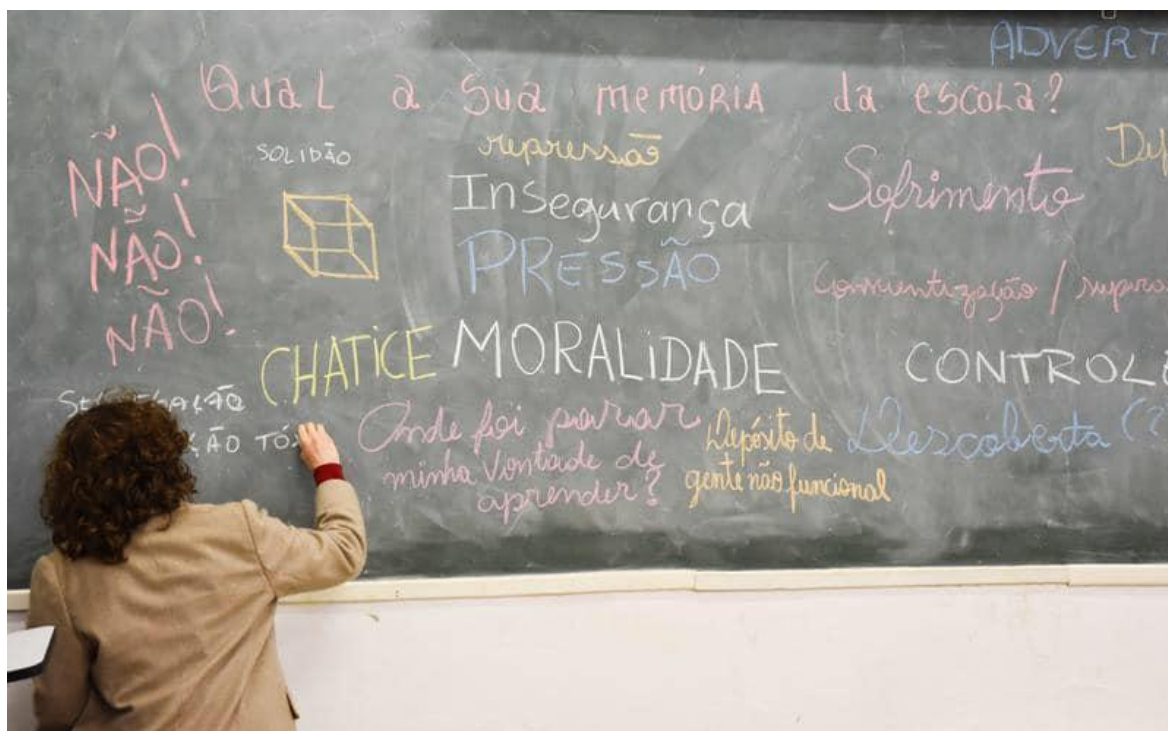 ADVERT
Qual a sua memória da escola?
NÃO!
NÃO!
NÃO!
SOLIDÃO
repressão
Insegurança
PRESSÃO
Sofrimento
Def
Conscientização / supera
CHATICE
MORALIDADE
CONTROLE
ÇÃO TÓX
Onde foi parar
minha vontade de
aprender?
Depósito de
gente não funcional
Descoberta (?